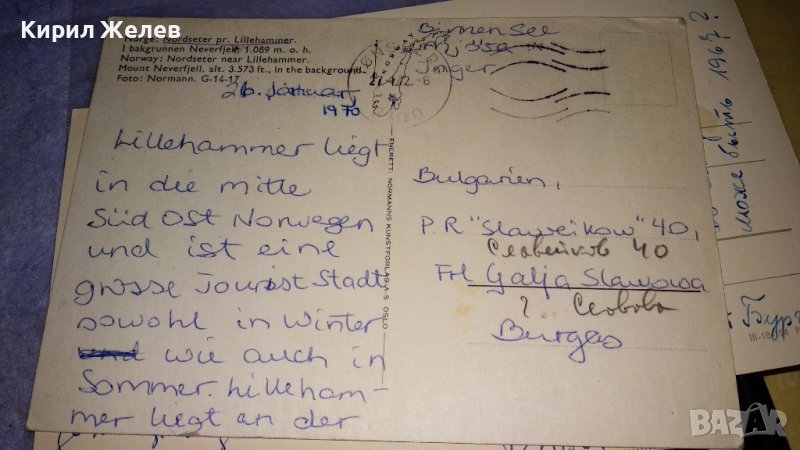 Кирил Желев
Norge: Nordseter pr. Lillehammer.
I bakgrunnen Neverfjell, 1.089 m. o. h.
Norway: Nordseter near Lillehammer.
Mount Neverfjell, alt. 3.573 ft., in the background
Foto: Normann. G-14-17
26. januar
1970
Lillehammer liegt
in die mitte
Süd Ost Norwegen
und ist eine
grosse Tourist Stadt
sowohl in Winter
und wie auch in
Sommer. Lilleham-
mer liegt an der
ENERETT: NORMANNS KUNSTFORLAG A.S OSLO
See
Bulgarien,
P.R "Slaweikow" 40,
Славейков 40
Frl Galja Slawowa
Г. Славова
Burgas
може быть 1967?
Бург
III-18
BAZAR